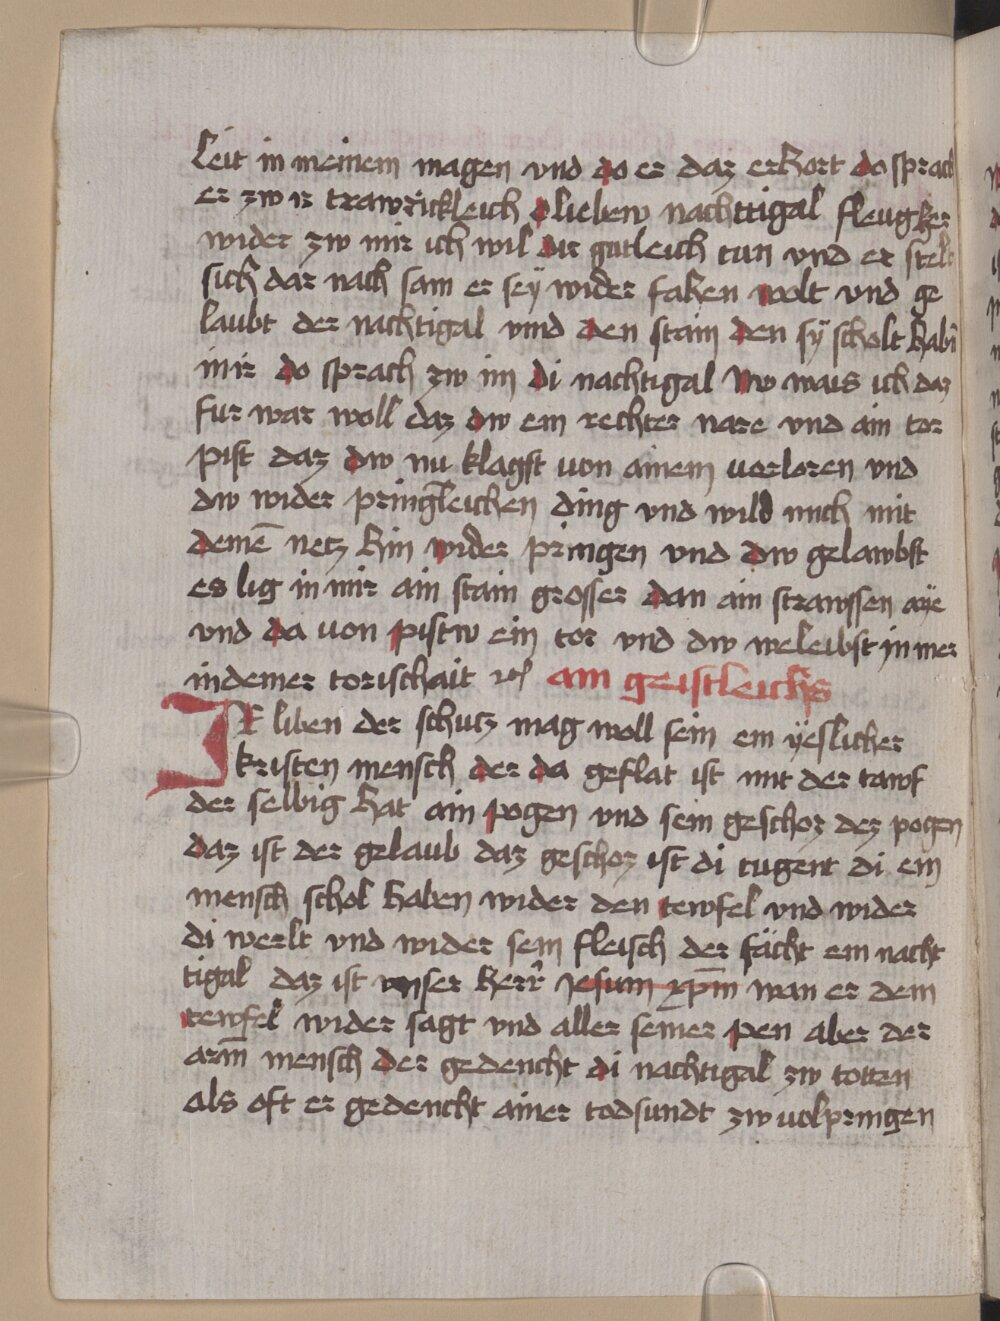 leit in meinem magen vnd do er daz erhort do sprach
er zw ir trawrickleich o liebew nachttigal fleug her
wider zw mir ich wil dir gutleich tun vnd er stelt
sich dar nach sam er sey wider fahen wolt vnd ge
laubt der nachtigal vmd den stain den sy scholt habn
in ir do sprach zw im di nachtigal Nw wais ich daz
fur war woll daz dw ein rechter nare vnd ain tor
pist daz dw nu klagst von ainem verloren vnd
dw wider pringleichen ding vnd wild mich mit
deinē netz hin wider pringen vnd dw gelawbst
es lig in mir ain stain grosser dan ain strawssen aye
vnd da von pistw ein tor vnd dw weleibst in mer
in deiner torischait ain geistleichs
IR liben der schutz mag woll sein ein yeslicher
kristen mensch der da geflat ist mit der tawf
der selbig hat ain pogen vnd sein geschoz dez pogen
daz ist der gelaub daz geschoz ist di tugent di ein
mensch schol haben wider den tewfel vnd wider
di werlt vnd wider sein fleisch der fächt ein nacht
tigal daz ist vnser herr Jesum xpm wan er dem
tewfel wider sagt vnd aller seiner pen aber der
arm mensch der gedencht di nachtigal zw totten
als oft er gedencht ainer todsundt zw volpringen